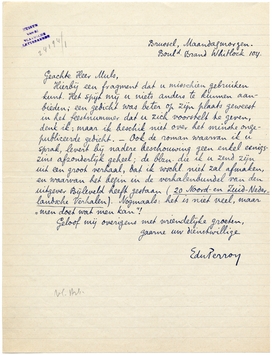 Brussel, Maandagmorgen.
Boulᵈ Brand Whitlock 107.
Geachte Heer Muls,
Hierbij een fragment dat u misschien gebruiken
kunt. Het spijt mij u niets anders te kunnen aan-
bieden; een gedicht was beter op zijn plaats geweest
in het feestnummer dat u zich voorstelt te geven,
denk ik; maar ik beschik niet over het minste onge-
publiceerde gedicht. – Ook de roman waarvan ik u
sprak, levert bij nadere beschouwing geen enkel eenigs-
zins afzonderlijk geheel; de blaen die ik u zend zijn
uit een groot verhaal, dat ik wohl niet zal afmaken,
en waarvan het begin in de verhalenbundel van den
uitgever Bijleveld heeft gestaan (20 Noord- en Zuid-Neder-
landsche Verhalen). Nogmaals: het is niet veel, maar
men doet wat men kan!
Geloof mij overigens met vriendelijke groeten,
gaarne uw dienstwillige
EduPerron